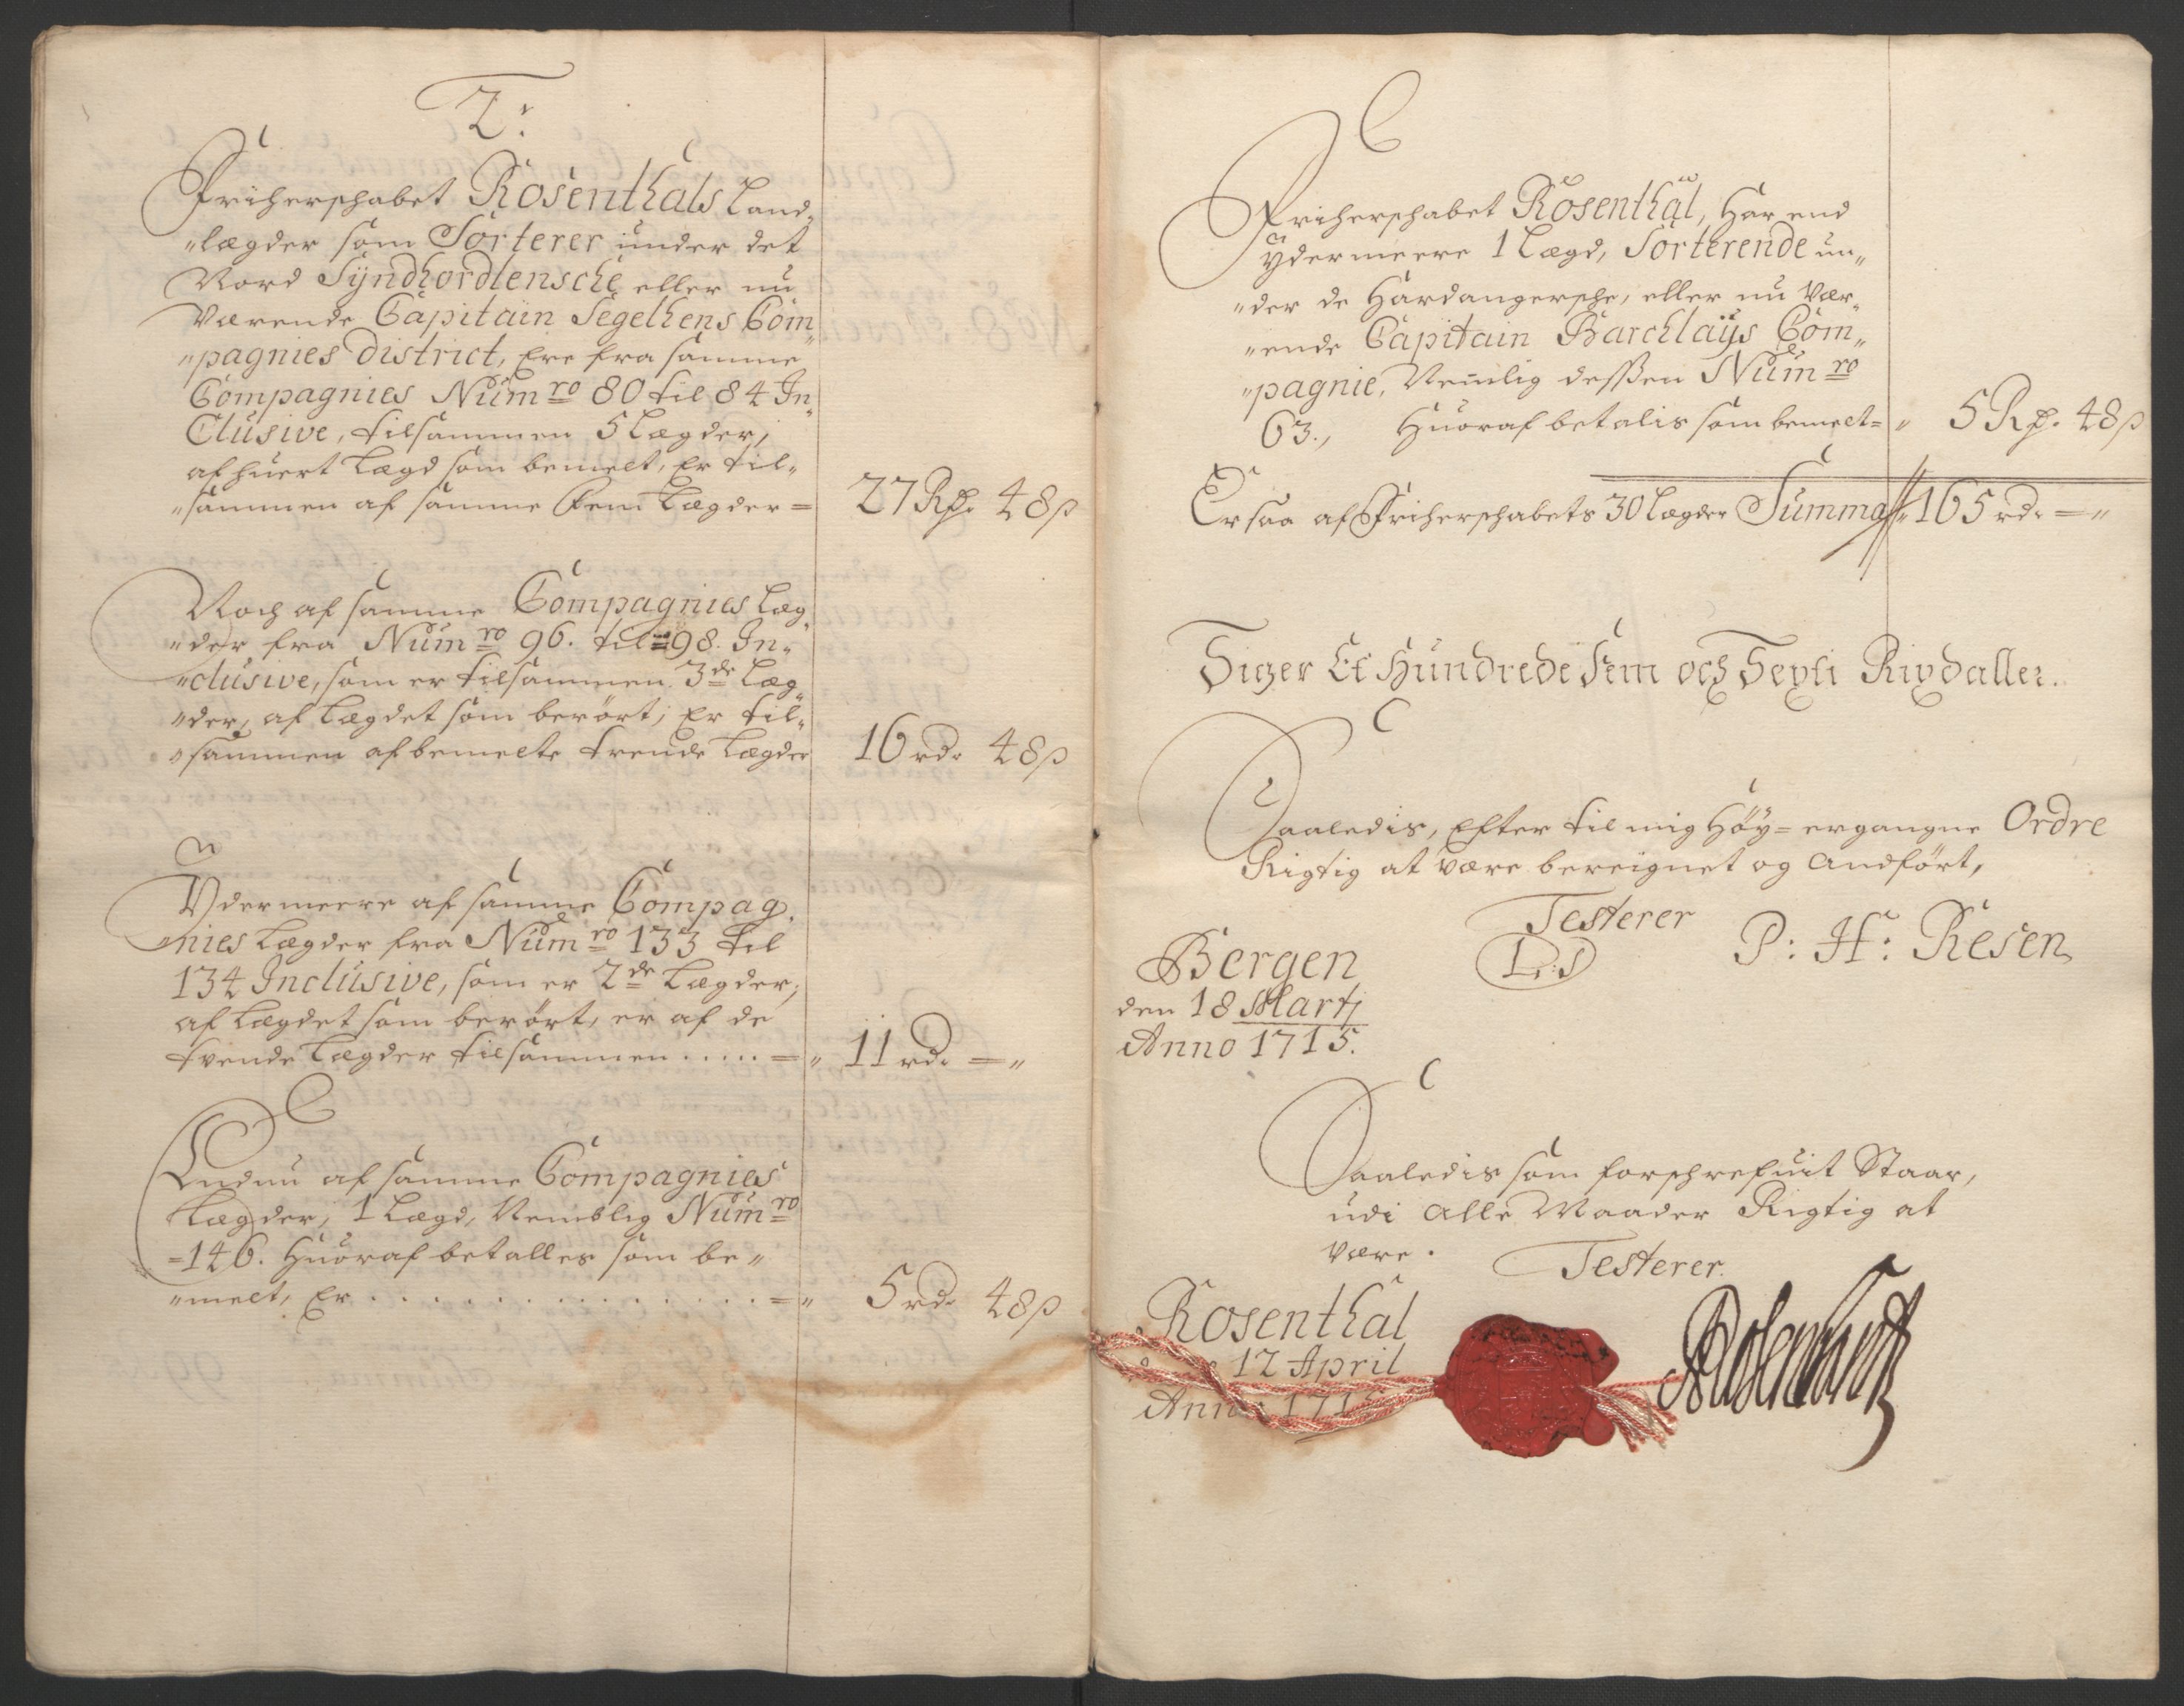 2:
Friherschabet Rosenthals Land¬
"lægder som Sorterer under det
Nord Syndhordlensche eller nu
værende Capitain Segelhens Com
"pagnies District, Ere fra samme
Compagnies Numro 80 til 84 In¬
Clusive, tilsammen 5 Lægder,
af huert Lægd som bemelt, Er til¬
"sammen af samme Fem Lægder = 27 Rd. 48 ß
Noch af samme Compagnies Læg¬
"der fra Numro 96. til 98. In¬
"clusive, som er tilsammen 3de Læg¬
"der, af Lægdet som berørt, Er til¬
"sammen af bemelte trende Lægder 16 rd. 48 ß
Ydermeere af samme Compag¬
nies Lægder fra Numro 133 til
134 Inclusive, som er 2de Lægder,
af Lægdet som berørt, er af de
tvende Lægder tilsammen ..... =" 11 rd. - "
Endnu af samme Compagnies
Lægder, 1 Lægd, Nemblig Numro
=146. Huoraf betalles som be¬
"melt, Er .............. =" 5 rd. 48 ß
Friherschabet Rosenthal, Har end
ydermeere 1 Lægd, Sorterende un¬
"der de Hardangersche, eller nu vær¬
"ende Capitain Barchlays Com¬
"pagnie, Nemlig dessen Numro
63., Huoraf betalis som bemelt = " 5 Rd. 48 ß
Er saa af Friherschabets 30 Lægder Summa 165 rd. - "
Siger Et Hundrede Fem och Sexti Rixdaller.
Saaledis, Efter til mig Høy=ergangne Ordre
Rigtig at være bereignet og Andført,
Testerer
Bergen L:S P: H: Resen
den 18 Martj
Anno 1715.
Saaledis som forschrefuit Staar,
udi Alle Maader Rigtig at
være. Testerer.
Rosenthal
12 April
Anno 1715